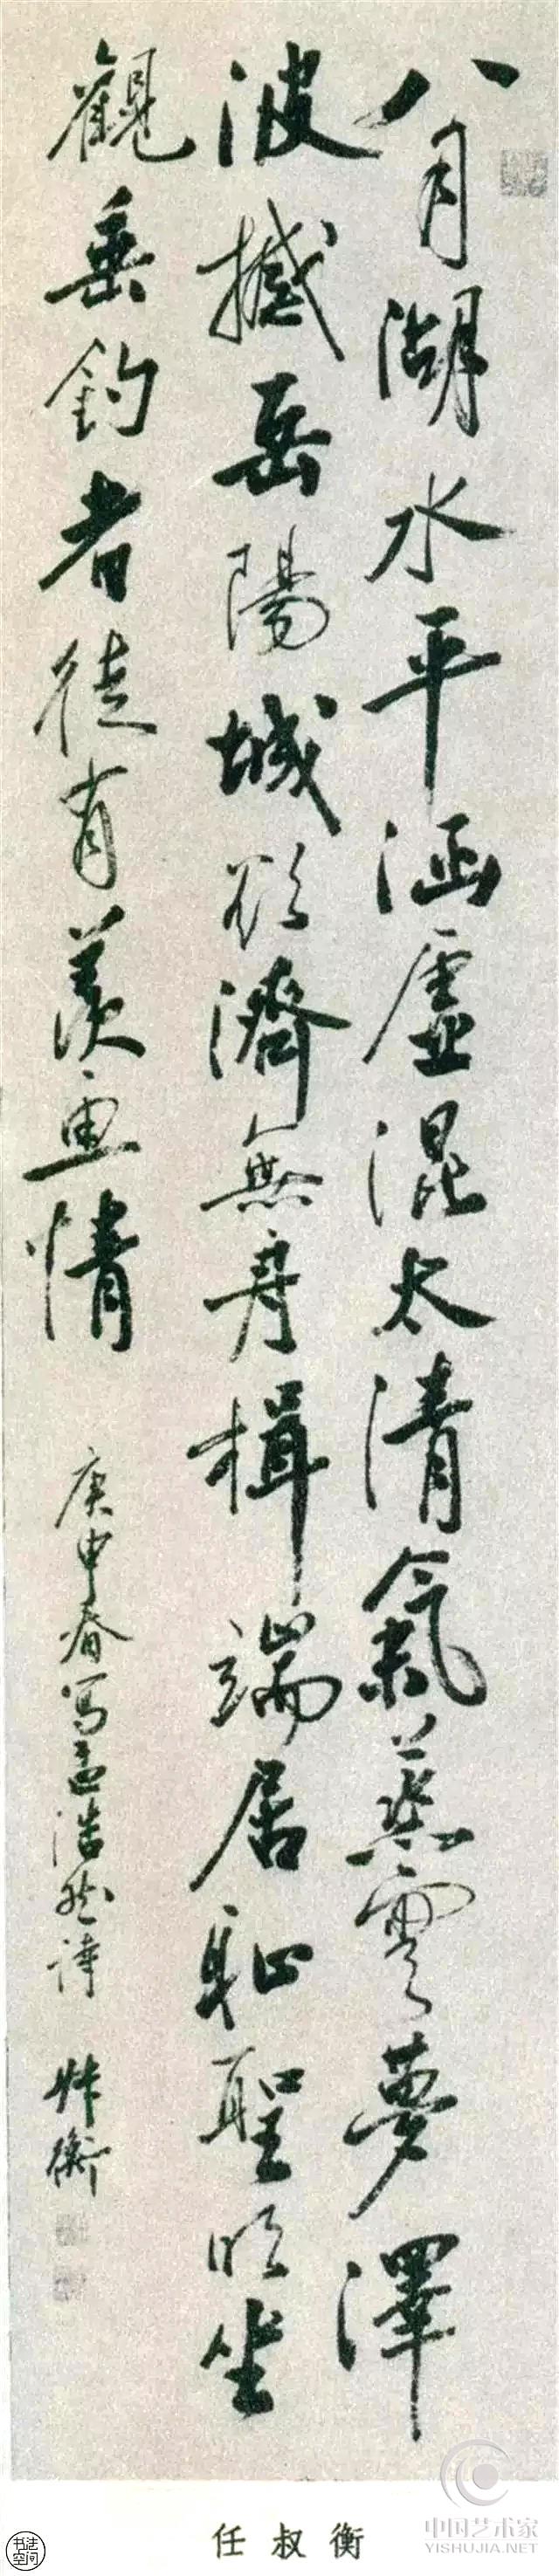 八月湖水平涵虛混太清氣蒸雲夢澤
波撼岳陽城欲濟無舟楫端居恥聖明坐
觀垂釣者徒有羨魚情
庚申春写孟浩然詩 叔衡
任叔衡
书法空间
中国艺术家
YISHUJIA.NET